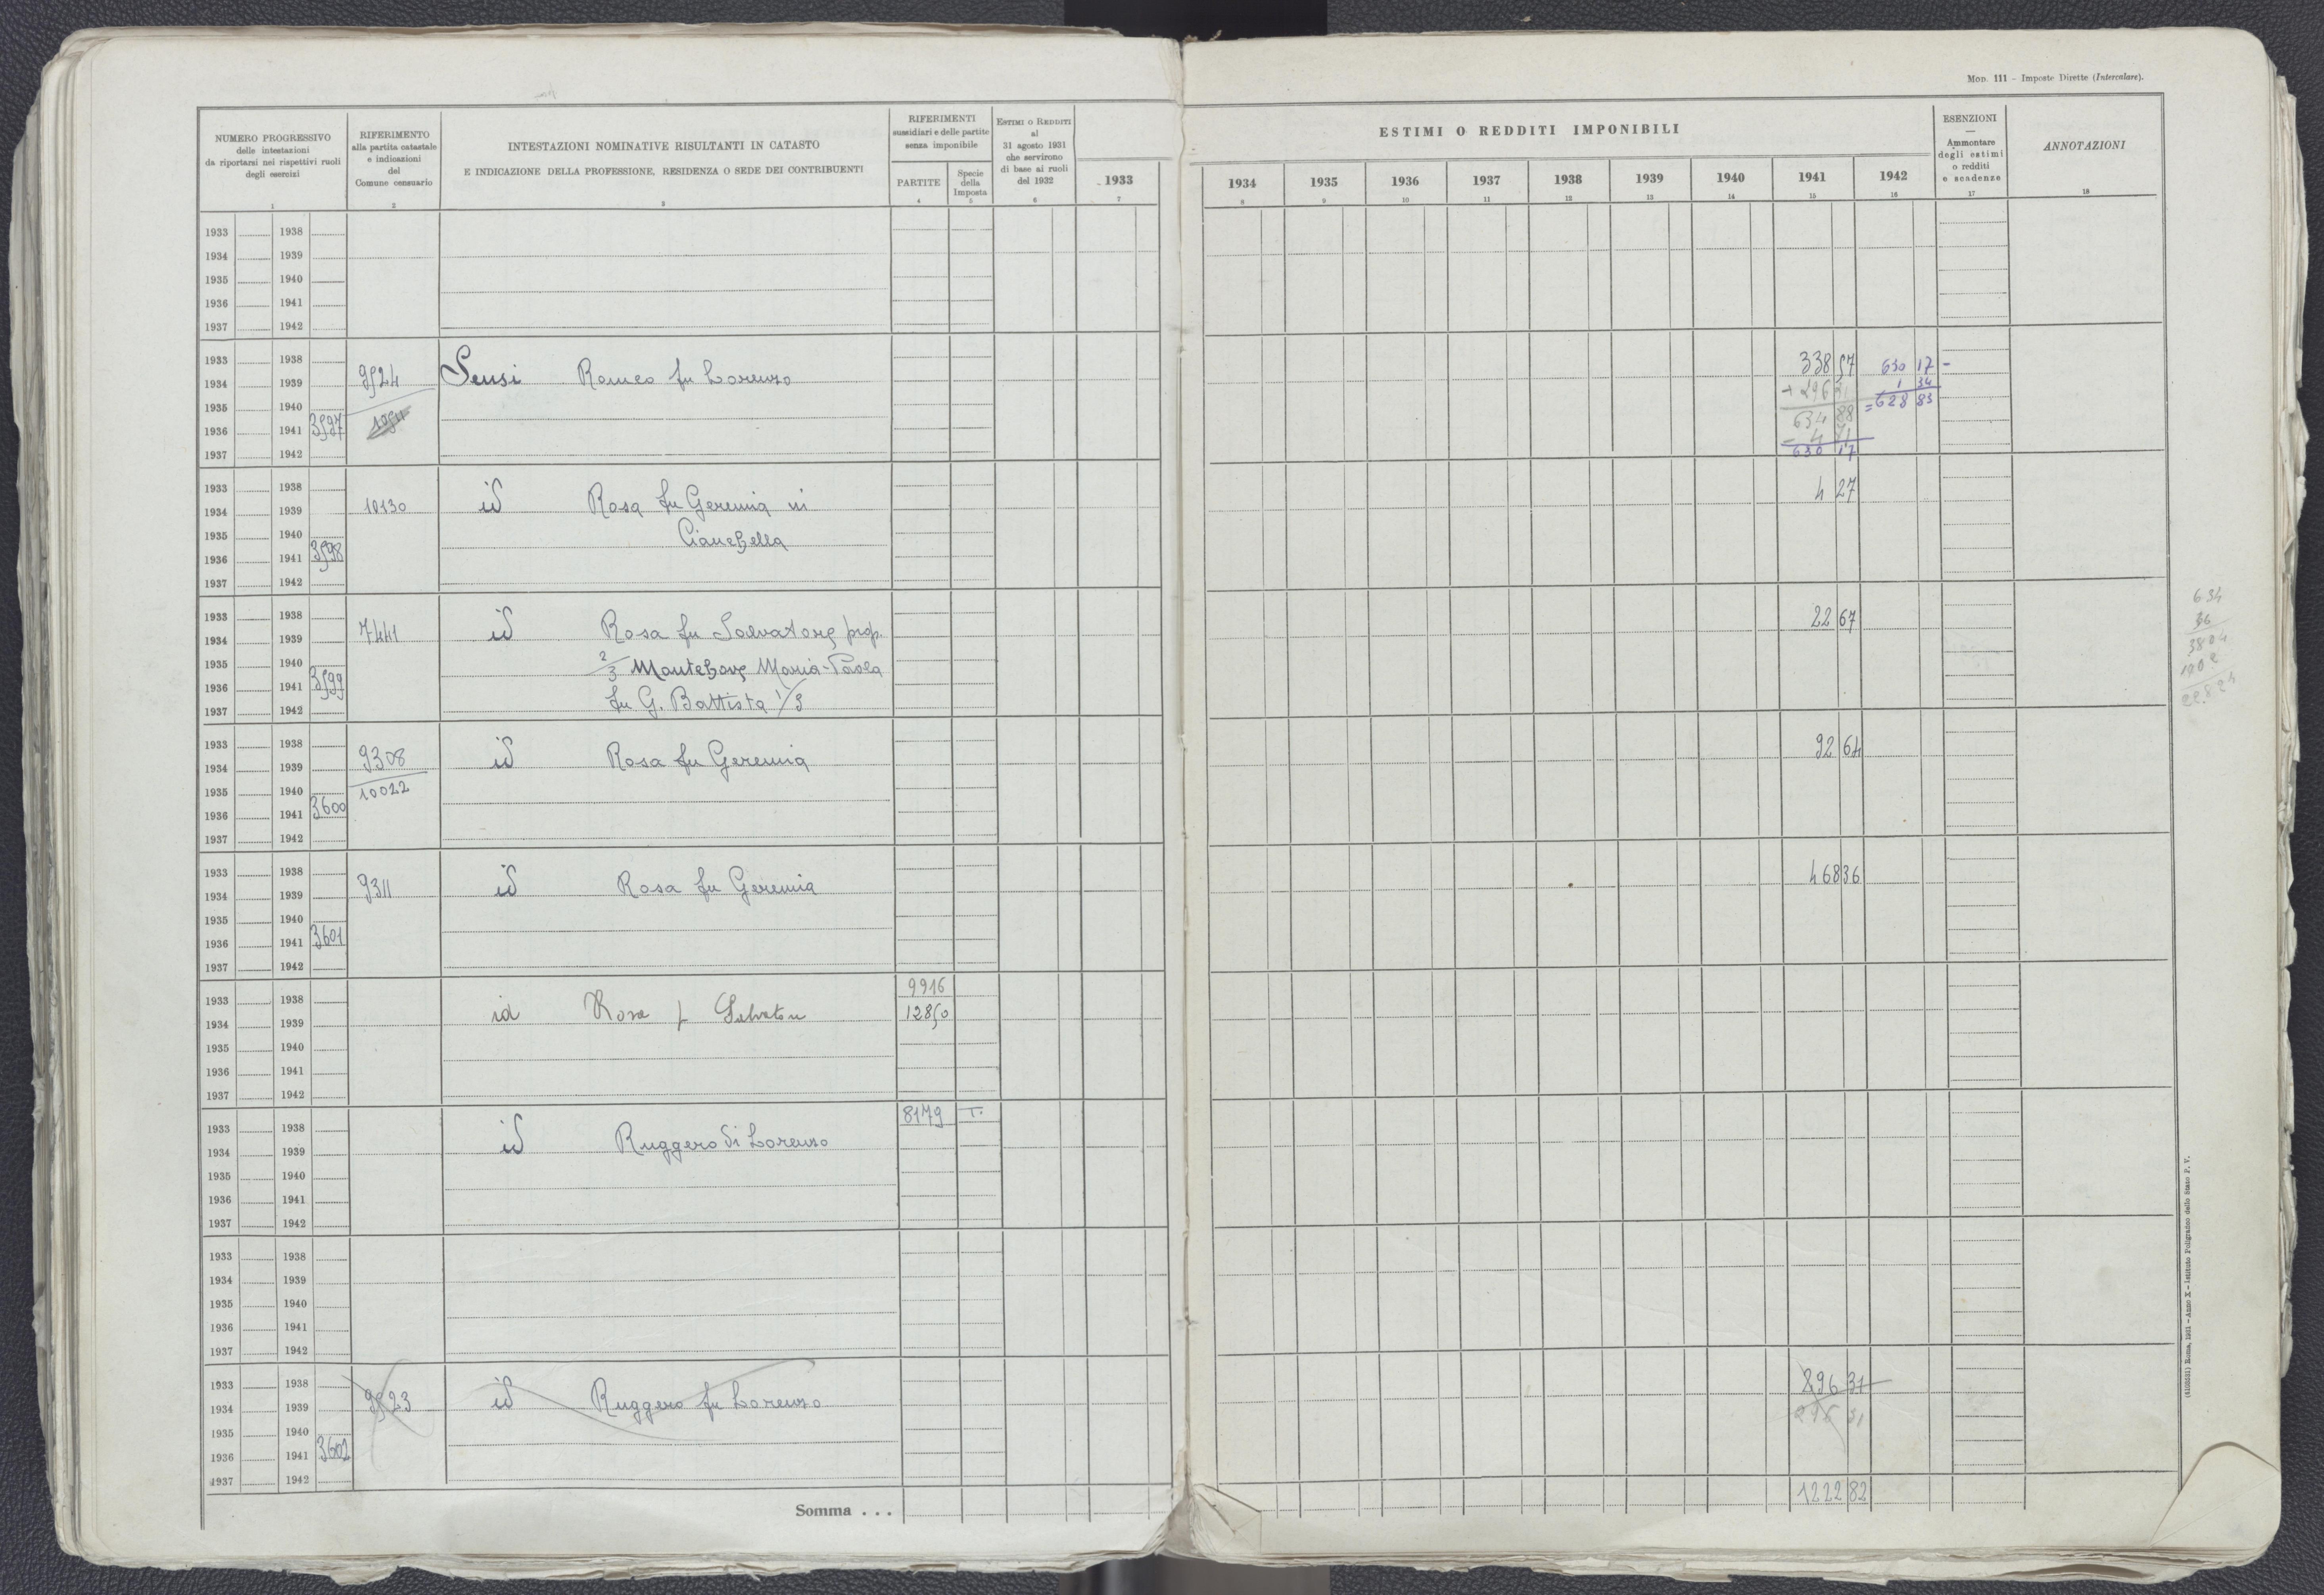 Mod. 111 - Imposte Dirette (Intercalare).
NUMERO PROGRESSIVO
delle intestazioni
da riportarsi nei rispettivi ruoli
degli esercizi
1
RIFERIMENTO
alla partita catastale
e indicazioni
del
Comune censuario
2
INTESTAZIONI NOMINATIVE RISULTANTI IN CATASTO
E INDICAZIONE DELLA PROFESSIONE, RESIDENZA O SEDE DEI CONTRIBUENTI
3
RIFERIMENTI
sussidiari e delle partite
senza imponibile
PARTITE
4
Specie
della
Imposta
5
ESTIMI O REDDITI
al
31 agosto 1931
che servirono
di base ai ruoli
del 1932
6
ESTIMI O REDDITI IMPONIBILI
1933 1934 1935 1936 1937 1938 1939 1940 1941 1942
7 8 9 10 11 12 13 14 15 16
ESENZIONI
—
Ammontare
degli estimi
o redditi
e scadenze
17
ANNOTAZIONI
18
1933 1938
1934 1939
1935 1940
1936 1941
1937 1942
1933 1938 338 57 630 17 -
1934 1939 9524 Sensi Romeo fu Lorenzo + 296 31 1 34
1935 1940 634 88 = 628 83
1936 1941 3597 - 4 71
1937 1942 630 17
1933 1938 4 27
1934 1939 10130 id Rosa fu Geremia in
1935 1940 Cianchella
1936 1941 3598
1937 1942
1933 1938 22 67
1934 1939 7441 id Rosa fu Salvatore prop.
1935 1940 2/3 Montebove Maria-Paola
1936 1941 3599
1937 1942 fu G. Battista 1/3
634
36
3804
1902
22824
1933 1938 92 64
1934 1939 9308 id Rosa fu Geremia
1935 1940 10022
1936 1941 3600
1937 1942
1933 1938 468 36
1934 1939 9311 id Rosa fu Geremia
1935 1940
1936 1941 3601
1937 1942
1933 1938 9916
1934 1939 id Rosa f Salvatore 12850
1935 1940
1936 1941
1937 1942
1933 1938 8179 T.
1934 1939 id Ruggero di Lorenzo
1935 1940
1936 1941
1937 1942
1933 1938
1934 1939
1935 1940
1936 1941
1937 1942
1933 1938 296 31
1934 1939 9523 id Ruggero fu Lorenzo 296 31
1935 1940
1936 1941 3602
1937 1942
Somma . . . 1222 82
(4103531) Roma, 1931 - Anno X - Istituto Poligrafico dello Stato P. V.